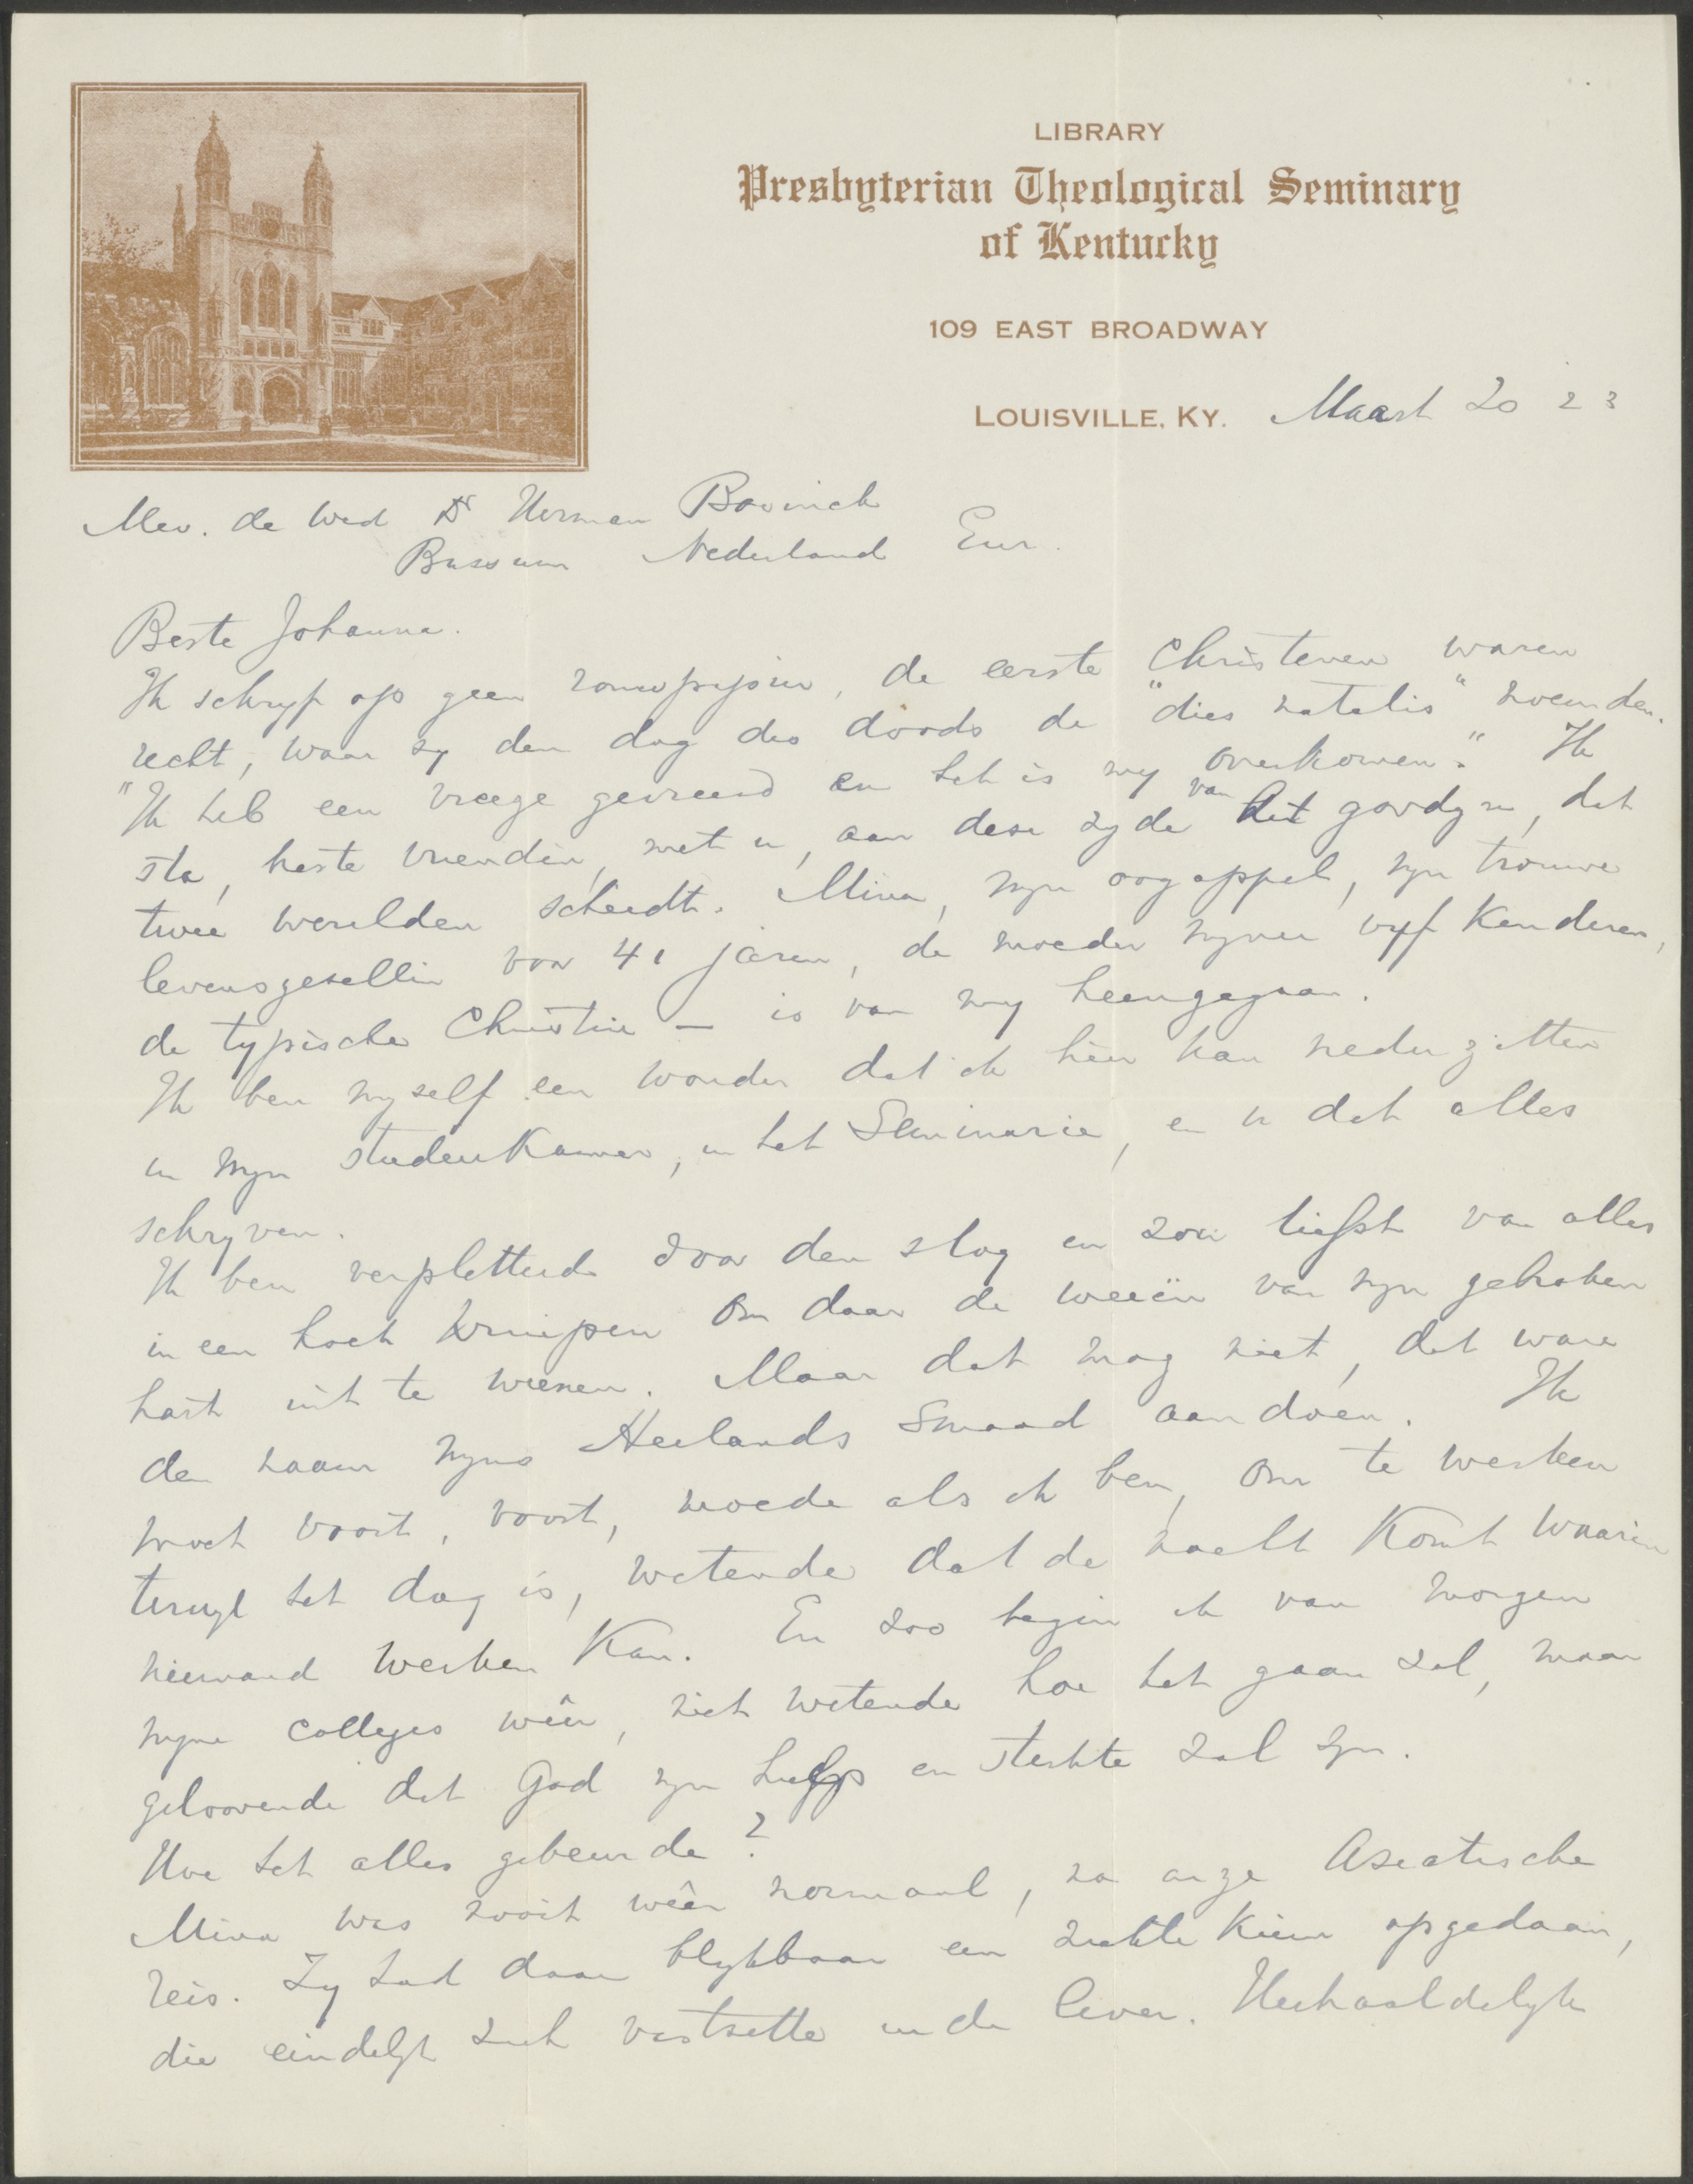 LIBRARY
Presbyterian Theological Seminary
of Kentucky
109 EAST BROADWAY
LOUISVILLE, KY. Maart 20 23
Mev. de Wed Dr Herman Bavinck
Bussum Nederland Eur.
Beste Johanna.
Ik schryf op geen rouwpapier, de eerste Christenen waren
recht, waar zy den dag des doods de "dies natalis" noemden.
"Ik heb een vreeze gevreesd en het is my overkomen." Ik
sta, beste vriendin, met u, aan deze zyde van het gordyn, dat
twee werelden scheidt. Mina, myn oogappel, myn trouwe
levensgezellin voor 41 jaren, de moeder myner vyf kinderen,
de typische Christin — is van my heengegaan.
Ik ben myself een wonder dat ik hier kan neder zitten
in myn studeerkamer, in het Seminarie, en u dat alles
schryven.
Ik ben verpletterd door den slag en zou liefst van alles
in een hoek kruipen om daar de weeën van myn gebroken
hart uit te weenen. Maar dat mag niet, dat ware
den naam myns Heilands smaad aandoen. Ik
moet voort, voort, moede als ik ben, om te werken
terwyl het dag is, wetende dat de nacht komt waarin
niemand werken kan. En zoo begin ik van morgen
myne colleges wêer, niet wetende hoe het gaan zal, maar
geloovende dat God myn hulp en sterkte zal zyn.
Hoe het alles gebeurde?
Mina was nooit wêer normaal, na onze Aziatische
reis. Zy had daar blykbaar een ziekte kiem opgedaan,
die eindelyk zich vastzette in de lever. Herhaaldelyk